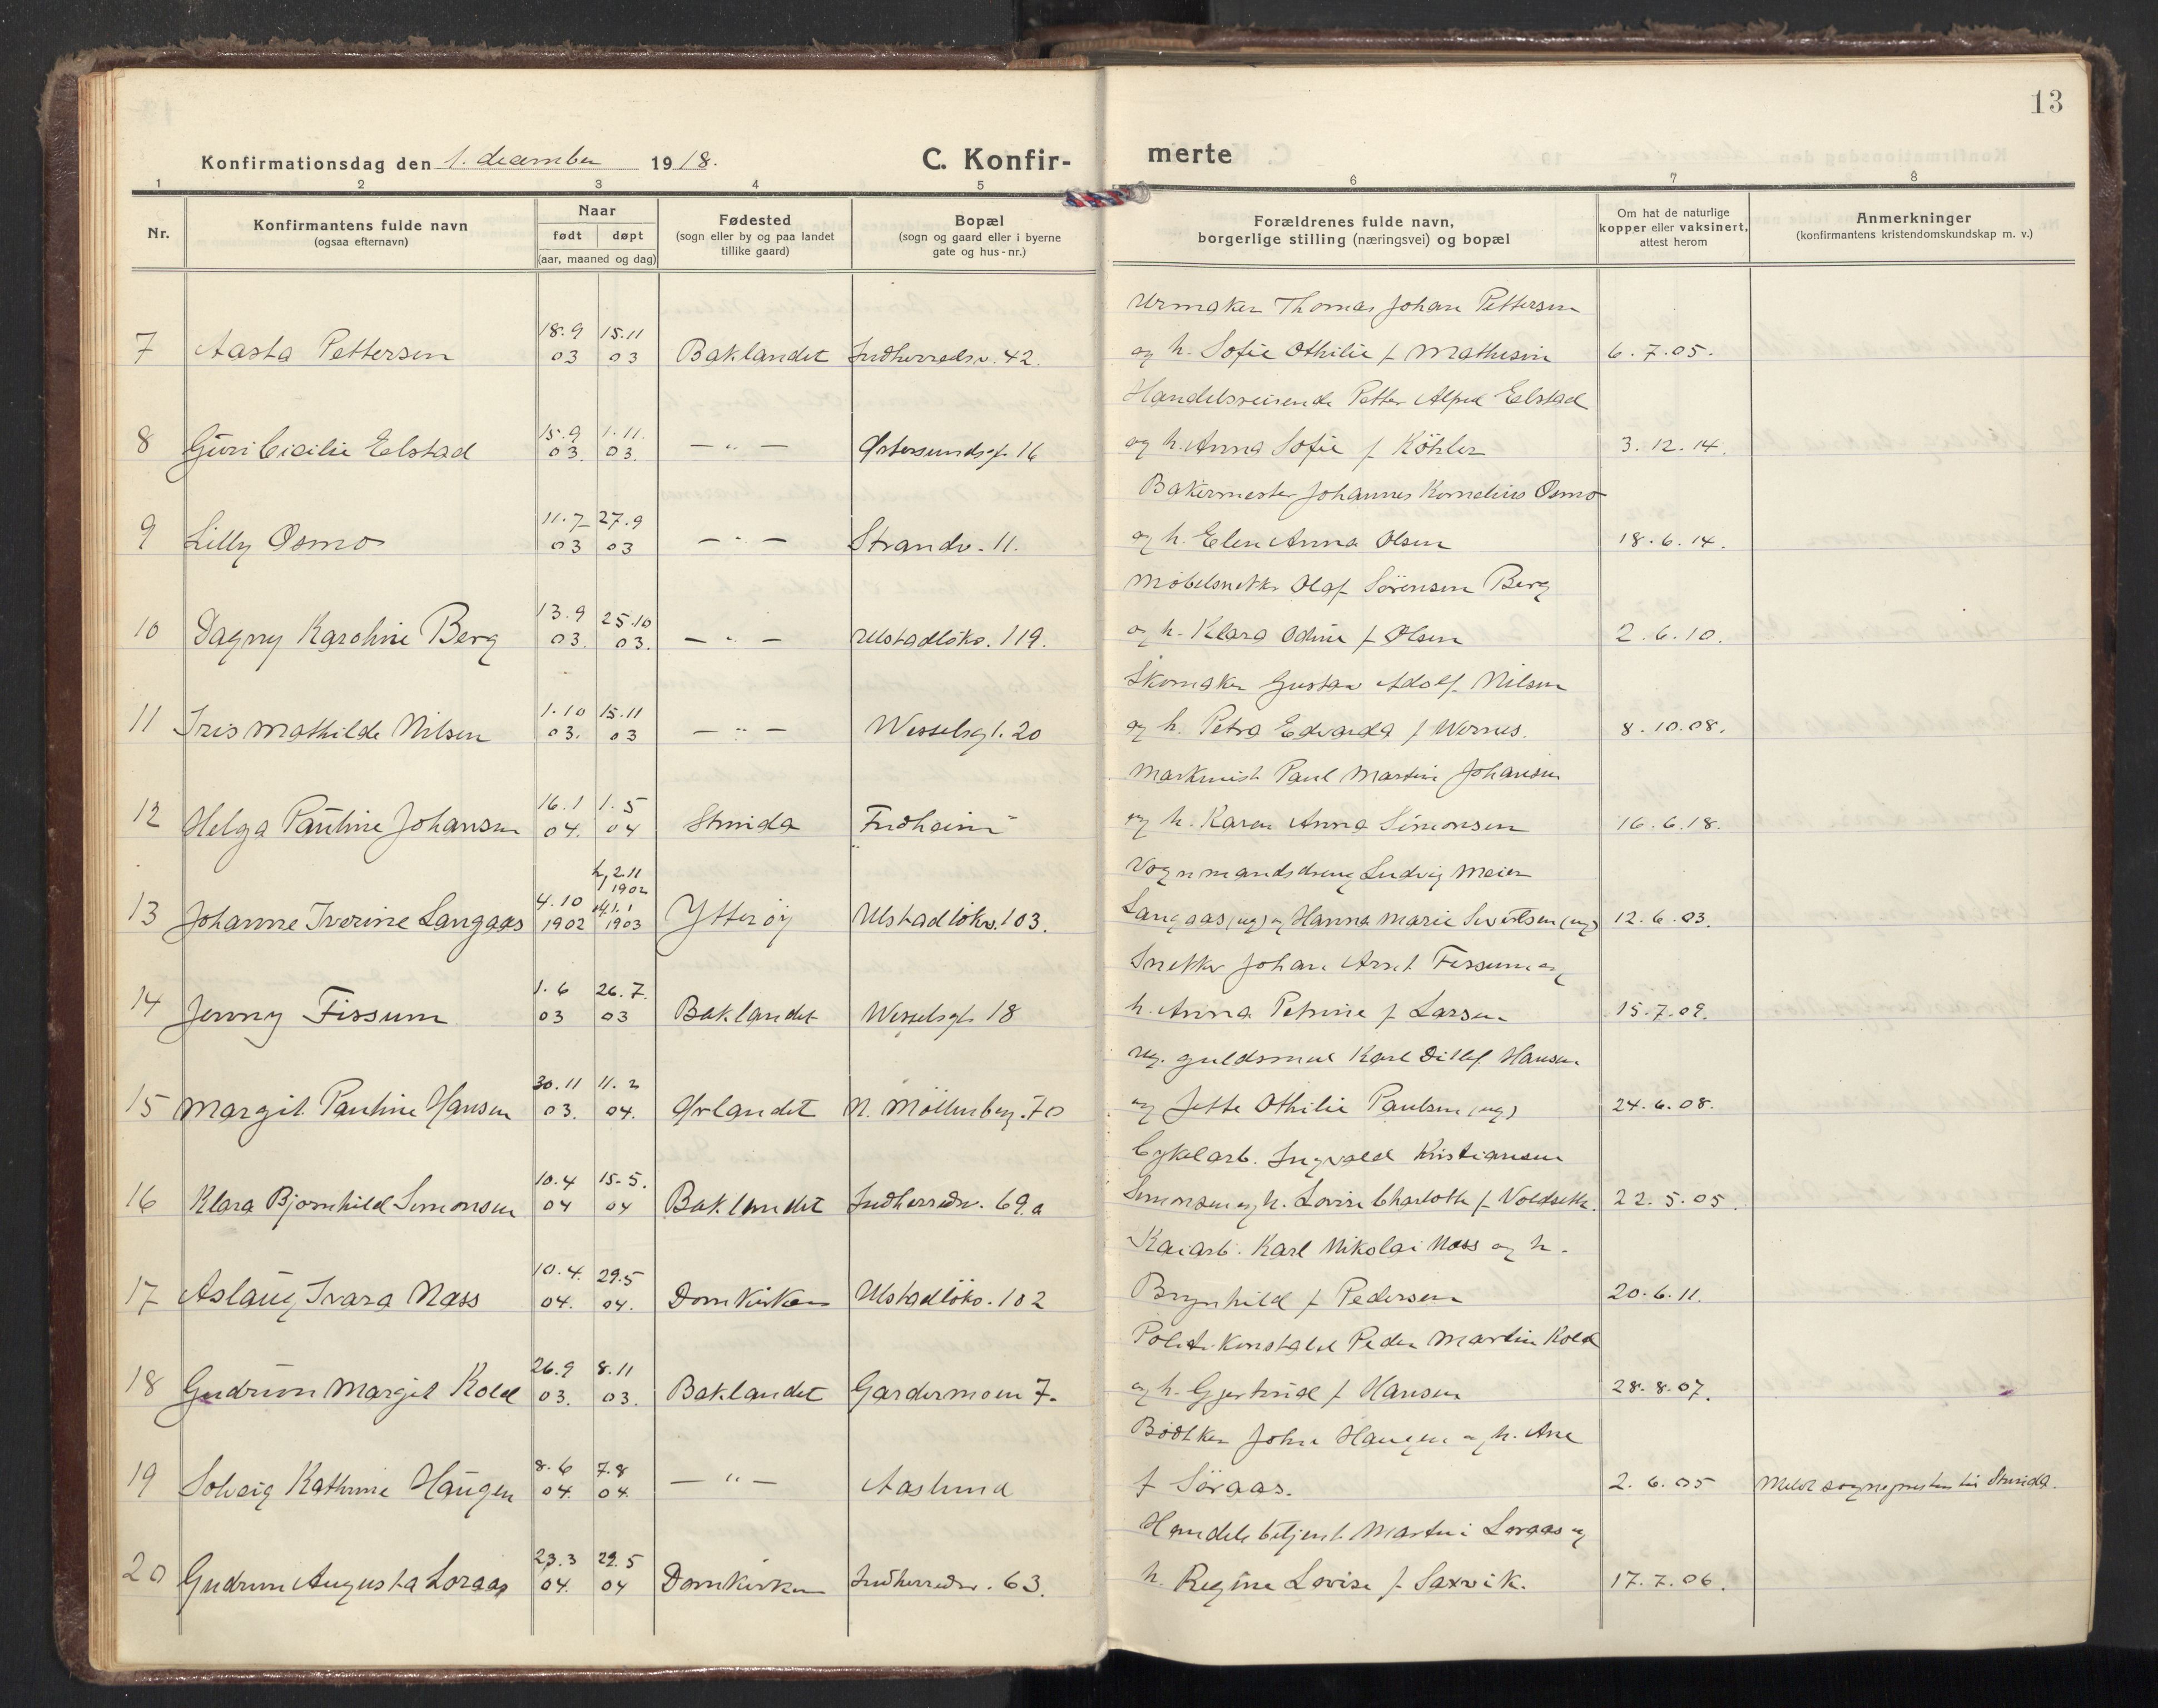 13
Konfirmationsdag den 1. december 1918.
C. Konfirmerte
1 2 3 4 5 6 7 8
Nr.
Konfirmantens fulde navn
(ogsaa efternavn)
Naar
født døpt
(aar, maaned og dag)
Fødested
(sogn eller by og paa landet
tillike gaard)
Bopæl
(sogn og gaard eller i byerne
gate og hus-nr.)
Forældrenes fulde navn,
borgerlige stilling (næringsvei) og bopæl
Om hat de naturlige
kopper eller vaksinert,
attest herom
Anmerkninger
(konfirmantens kristendomskundskap m. v.)
Urmaker Thomas Johan Pettersen
18.9 15.11
7 Aasta Pettersen 03 03 Baklandet Indherredsv. 42. og h. Sofie Othilie f. Mathisen 6.7.05.
Handelsreisende Petter Alfred Elstad
15.9 1.11.
8 Guri Cicilie Elstad 03. 03. — " — Østersundsgt. 16 og h. Anna Sofie f. Köhler 3.12.14.
Bakermester Johannes Kornelius Osmo
11.7 27.9
9 Lilly Osmo 03 03 — " — Strandv. 11. og h. Elen Anna Olsen 18.6.14.
Møbelsnekker Olaf Sörensen Berg
13.9 25.10
10 Dagny Karoline Berg 03. 03. — " — Ulstadlökv. 119. og h. Klara Odine f. Olsen 2.6.10.
Skomaker Gustav Adolf Nilsen
1.10 15.11
11 Iris Mathilde Nilsen 03. 03 — " — Wesselsgt. 20 og h. Petra Edvarda f. Wernes. 8.10.08.
Maskinist Paul Martin Johansen
16.1 1.5
12 Helga Pauline Johansen 04. 04 Strinda Fredheim og h. Karen Anna Simonsen 16.6.18.
Vognmandsdreng Ludvig Meier
hj. 2.11 1902
4.10 14.1.
13 Johanne Iverine Langaas 1902 1903 Ytterøy Ulstadlökv. 103. Langaas (ug) og Hanna Marie Sivertsen (ug) 12.6.03.
Snekker Johan Arnt Fissum og
1.6 26.7.
14 Jenny Fissum 03 03 Baklandet Wesselsgt. 18 h. Anna Petrine f. Larsen 15.7.09.
Ug. guldsmed Karl Ditlef Hansen
30.11 11.2
15 Margit Pauline Hansen 03. 04. Ørlandet N. Möllenberg. 70. og Jette Othilie Paulsen (ug) 24.6.08.
Cykelarb. Ingvald Kristiansen
10.4 15.5.
16 Klara Bjornhild Simonsen 04 04 Baklandet Indherredsv. 69.a Simonsen og h. Lovise Charlotte f. Voldseth. 22.5.05.
Kaiarb. Karl Nikolai Næss og h.
10.4. 29.5
17 Aslaug Ivara Næss 04. 04. Domkirken Ulstadlökv. 102 Brynhild f. Pedersen 20.6.11.
Politikonstabel Peder Martin Kold
26.9 8.11
18 Gudrun Margit Kold 03. 03. Baklandet Gardermoen 7. og h. Gjertrud f. Hansen 28.8.07.
Bødtker John Haugen og h. Ane
8.6 7.8
19 Solveig Kathrine Haugen 04. 04. — " — Aaslund f. Söraas. 2.6.05 Meldt sognepresten til Strinda.
Handelsbetjent Martin Loraas og
23.3 29.5
20 Gudrun Augusta Loraas 04. 04 Domkirken Indherredsv. 63. h. Regine Lovise f. Saxvik. 17.7.06.